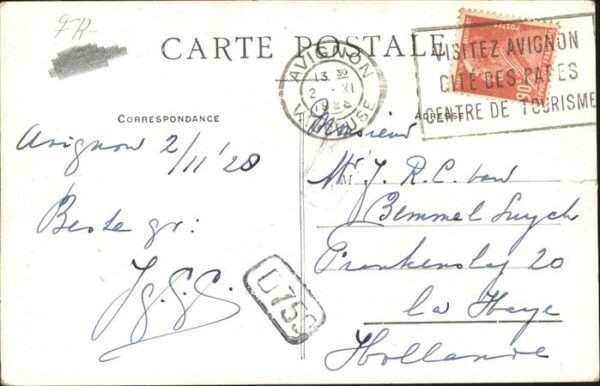 FR-
CARTE POSTALE
AVIGNON
13 30
2 - XI
1928
VAUCLUSE
VISITEZ AVIGNON
CITE DES PAPES
CENTRE DE TOURISME
90
CORRESPONDANCE
ADRESSE
Avignon 2/11'28
Beste gr:
Monsieur
Mr. J. R. C. van
Bemmel Suyck
Frankenslag 20
la Haye
Hollande